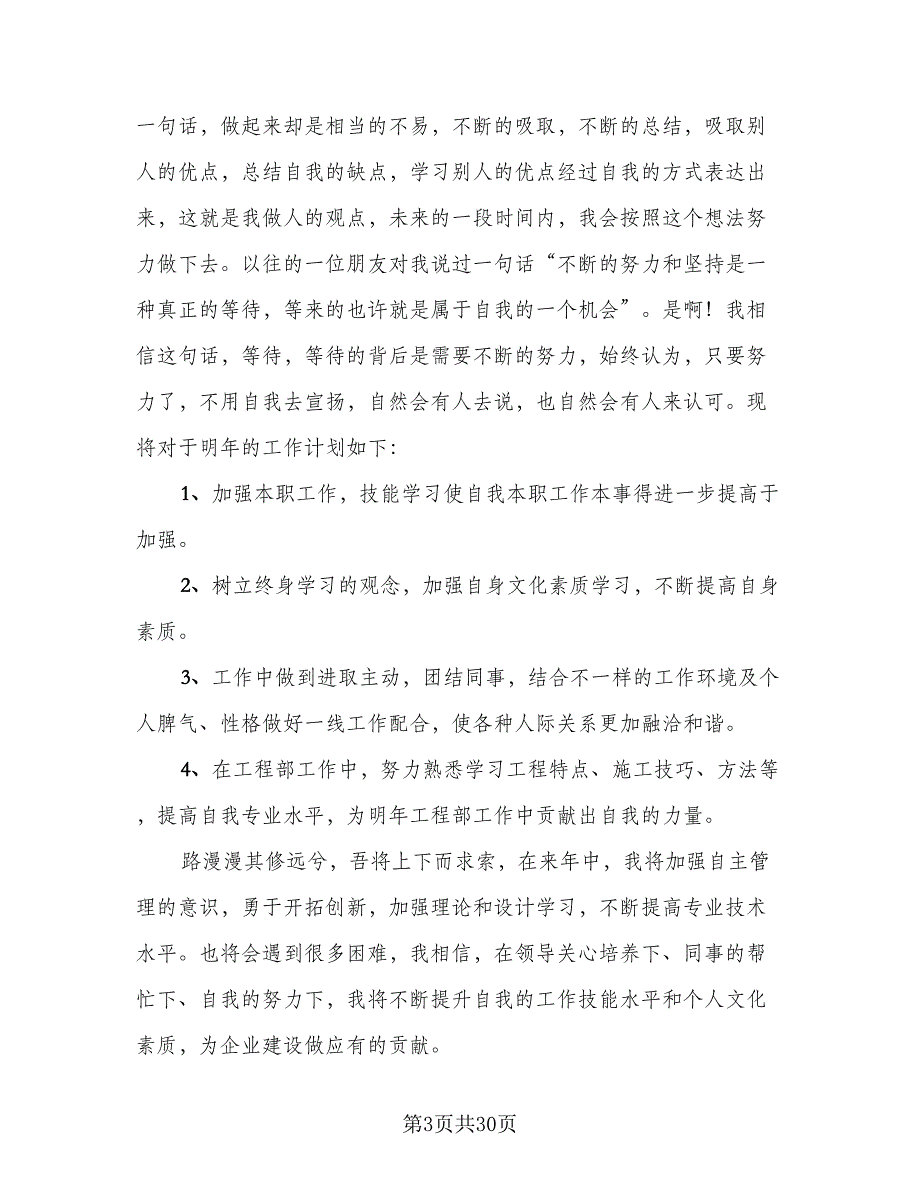 一句话，做起来却是相当的不易，不断的吸取，不断的总结，吸取别
人的优点，总结自我的缺点，学习别人的优点经过自我的方式表达出
来，这就是我做人的观点，未来的一段时间内，我会按照这个想法努
力做下去。以往的一位朋友对我说过一句话“不断的努力和坚持是一
种真正的等待，等来的也许就是属于自我的一个机会”。是啊！我相
信这句话，等待，等待的背后是需要不断的努力，始终认为，只要努
力了，不用自我去宣扬，自然会有人去说，也自然会有人来认可。现
将对于明年的工作计划如下：
1、加强本职工作，技能学习使自我本职工作本事得进一步提高于
加强。
2、树立终身学习的观念，加强自身文化素质学习，不断提高自身
素质。
3、工作中做到进取主动，团结同事，结合不一样的工作环境及个
人脾气、性格做好一线工作配合，使各种人际关系更加融洽和谐。
4、在工程部工作中，努力熟悉学习工程特点、施工技巧、方法等
，提高自我专业水平，为明年工程部工作中贡献出自我的力量。
路漫漫其修远兮，吾将上下而求索，在来年中，我将加强自主管
理的意识，勇于开拓创新，加强理论和设计学习，不断提高专业技术
水平。也将会遇到很多困难，我相信，在领导关心培养下、同事的帮
忙下、自我的努力下，我将不断提升自我的工作技能水平和个人文化
素质，为企业建设做应有的贡献。
第3页共30页